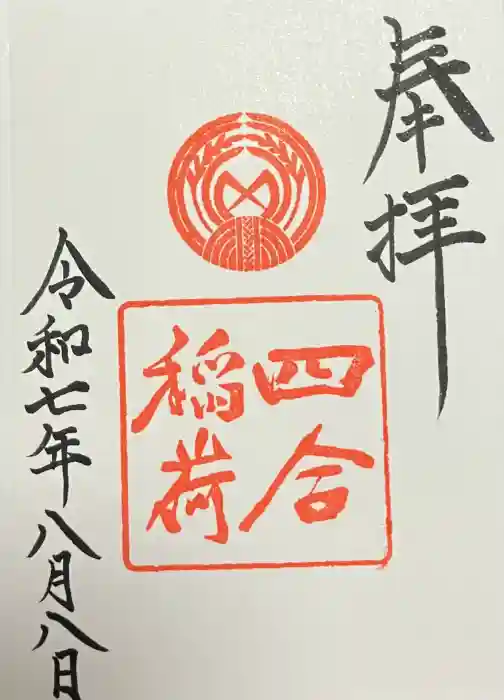 奉拝
四合
稲荷
令和七年八月八日